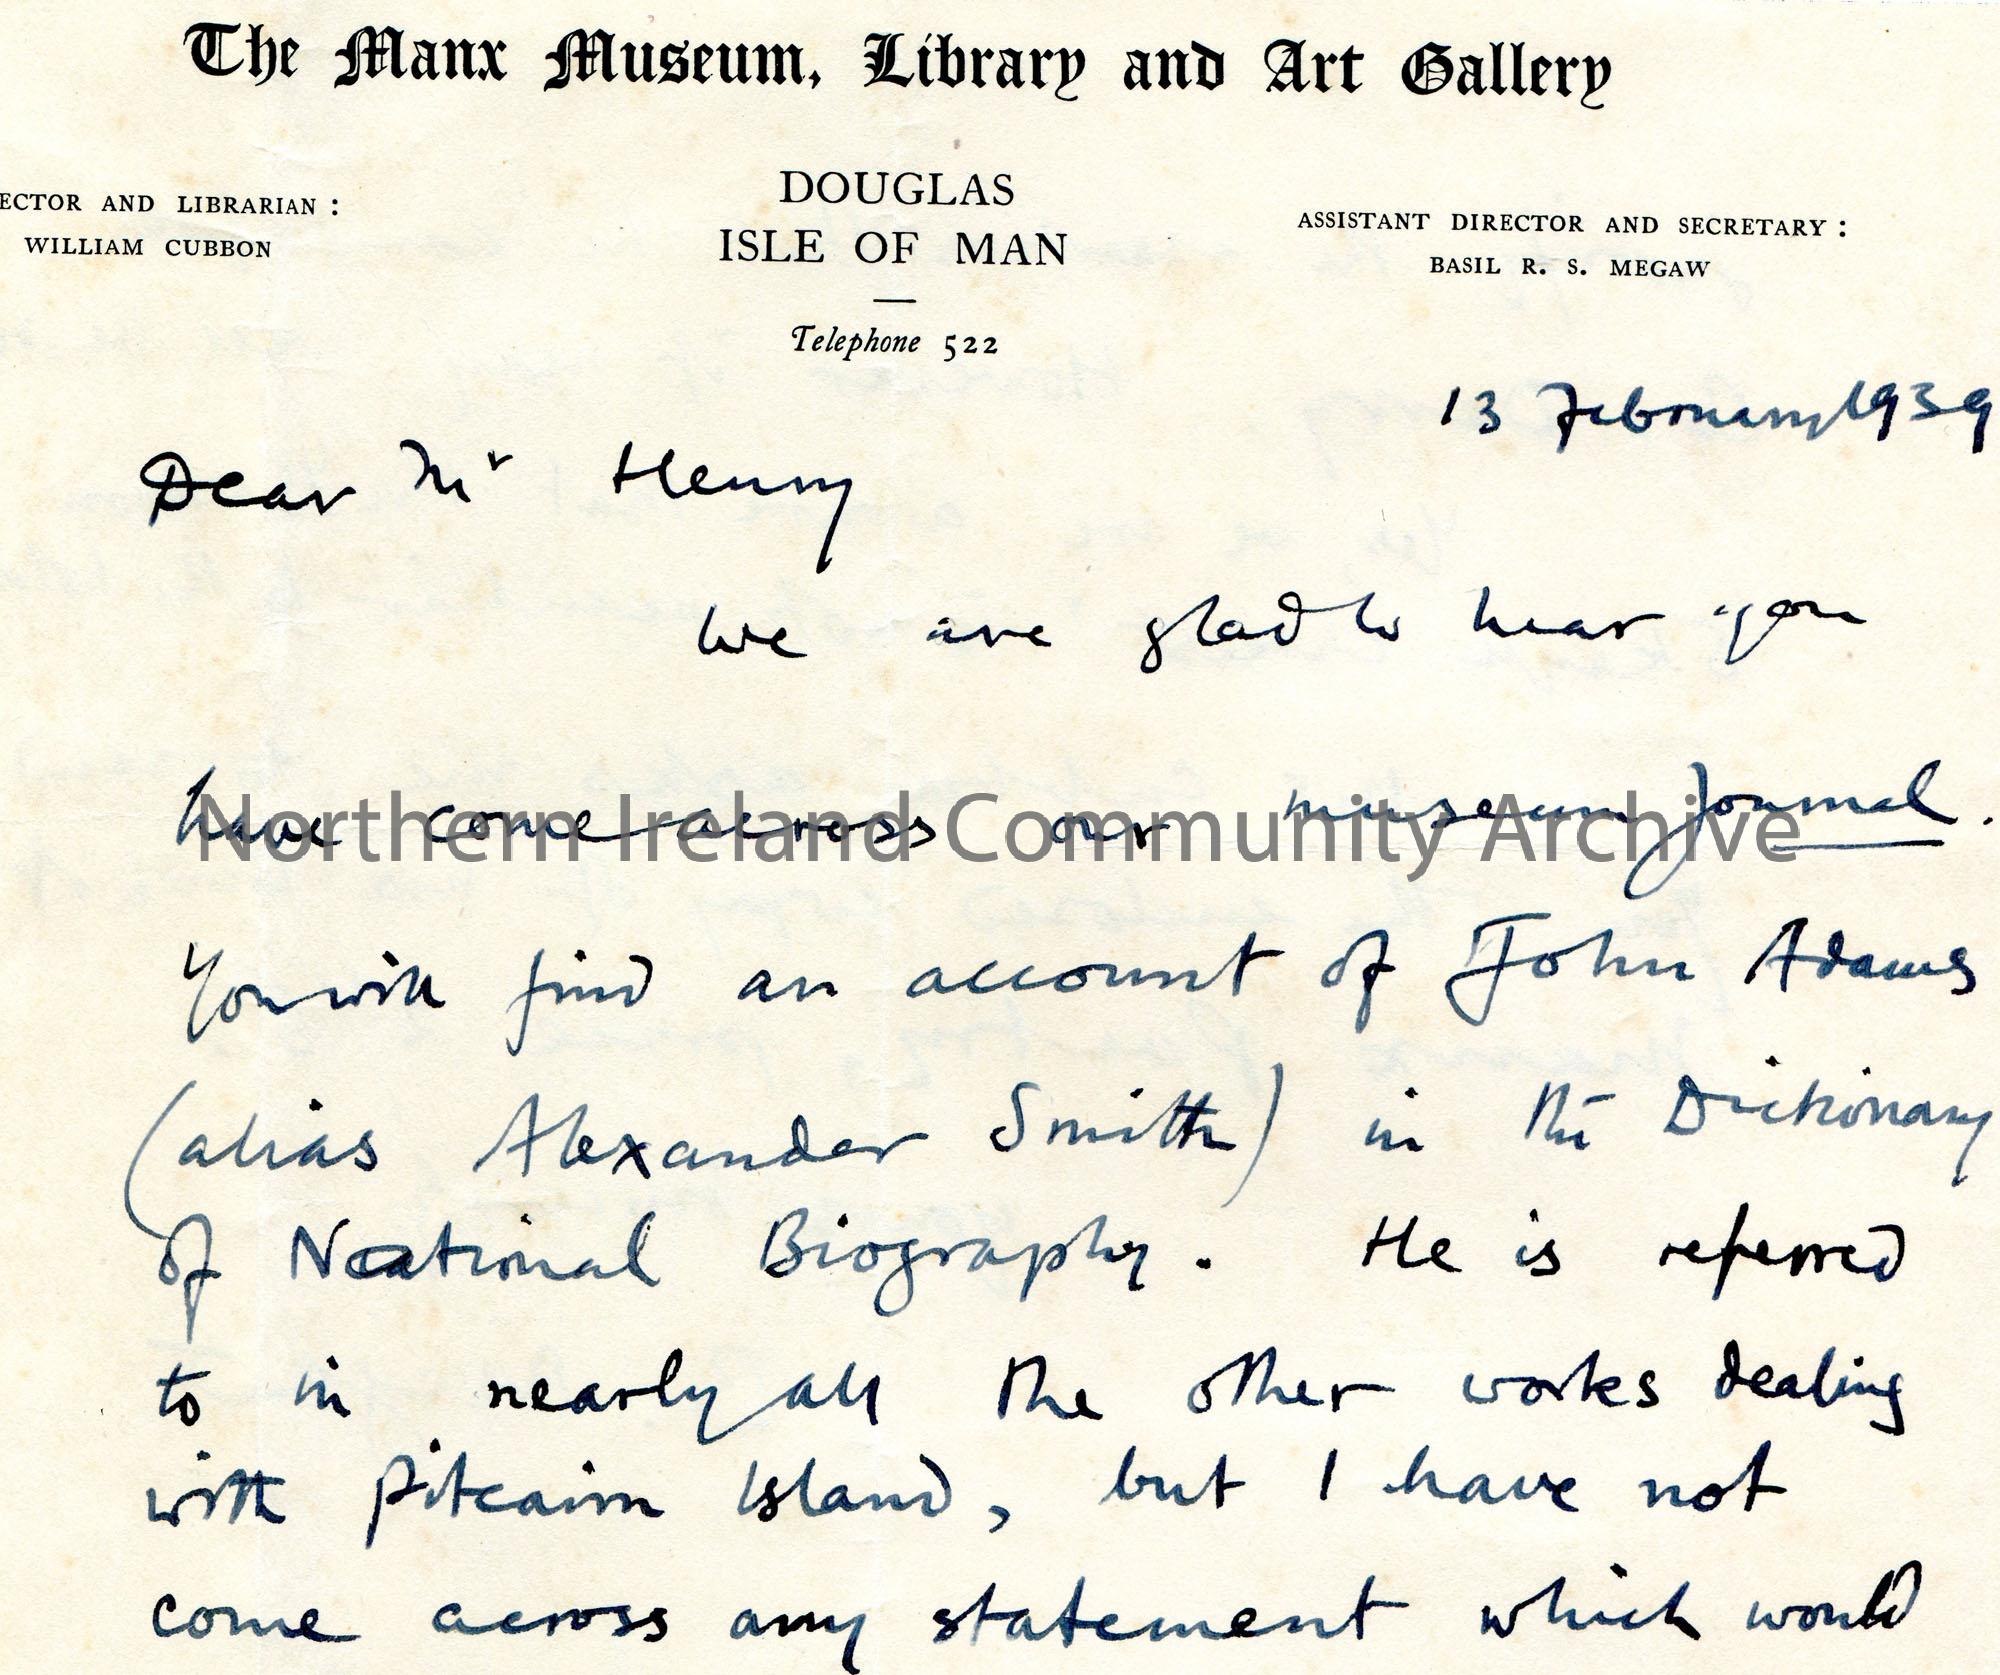 The Manx Museum, Library and Art Gallery
DOUGLAS
ISLE OF MAN
Telephone 522
ECTOR AND LIBRARIAN :
WILLIAM CUBBON
ASSISTANT DIRECTOR AND SECRETARY :
BASIL R. S. MEGAW
13 February 1939
Dear Mr Henry
We are glad to hear you
have come across our museum Journal.
You will find an account of John Adams
(alias Alexander Smith) in the Dictionary
of National Biography. He is referred
to in nearly all the other works dealing
with Pitcairn Island, but I have not
come across any statement which would
Northern Ireland Community Archive